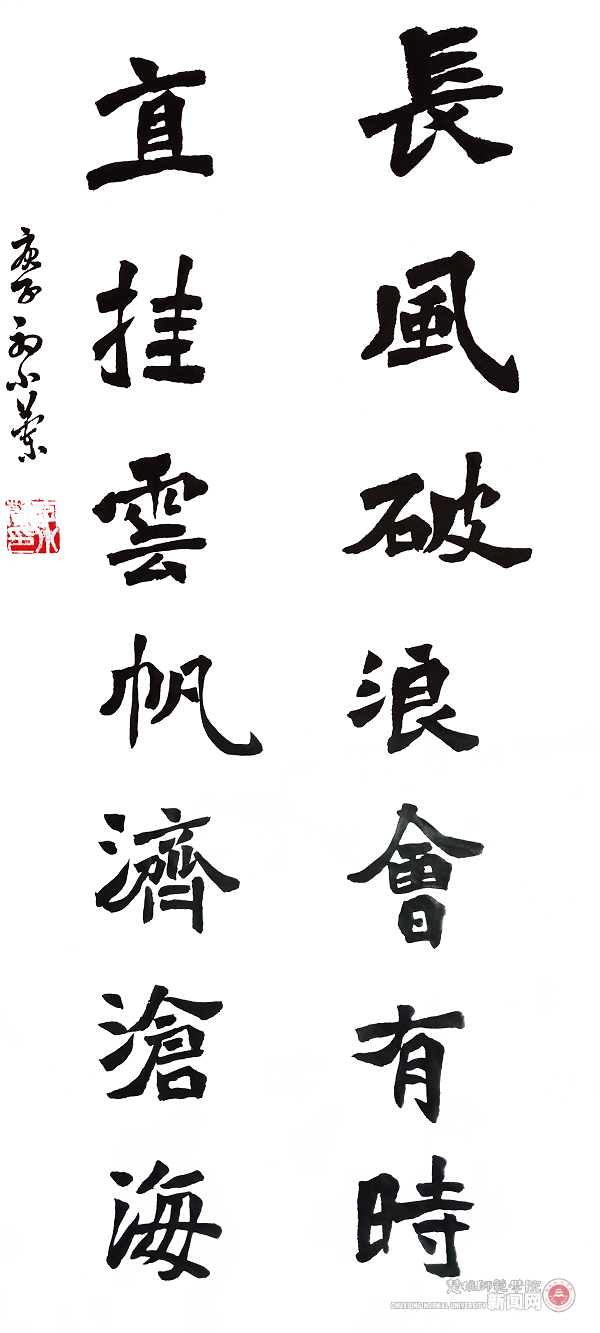 長風破浪會有時
直挂雲帆濟滄海
庚子 小蘭
楚雄師範學院
CHUXIONG NORMAL UNIVERSITY 新闻网